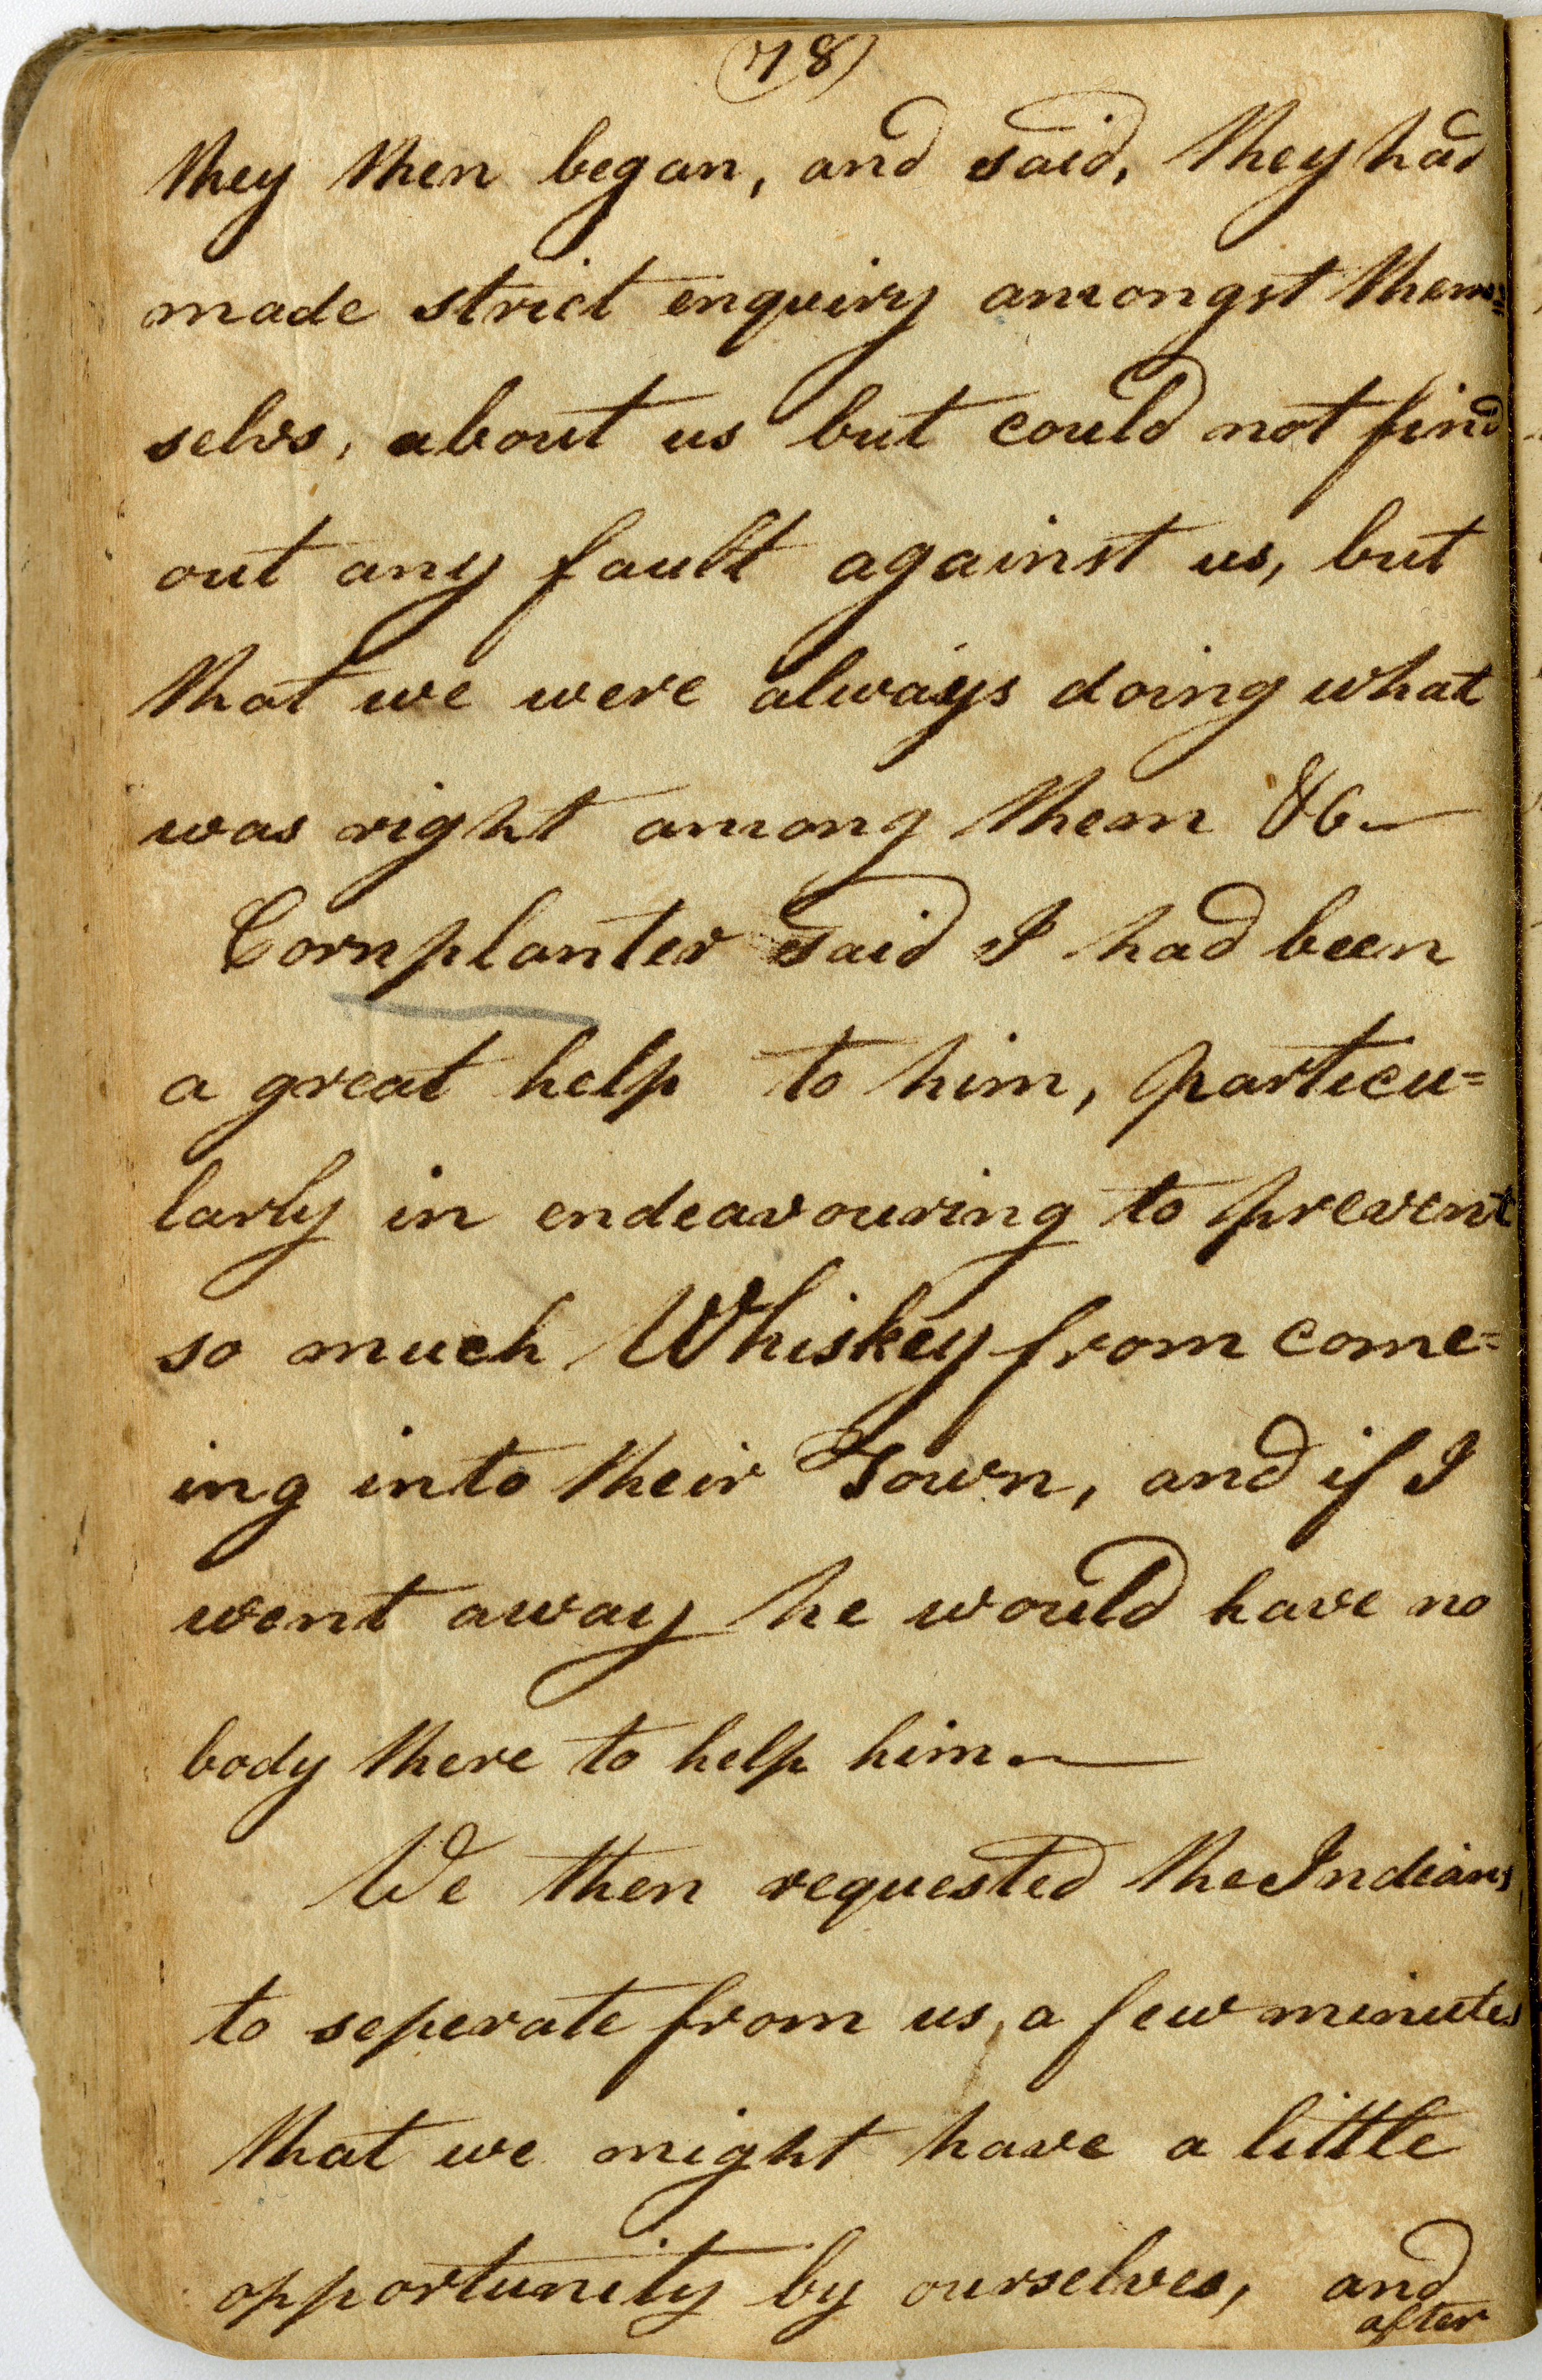 (78)
they then began, and said, they had
made strict enquiry amongst them=
selvs, about us but could not find
out any fault against us, but
that we were always doing what
was right among them &c—
Cornplanter said I had been
a great help to him, particu=
larly in endeavouring to prevent
so much Whiskey from come=
ing into their Town, and if I
went away he would have no
body there to help him—
We then requested the Indians
to seperate from us, a few minutes
that we might have a little
opportunity by ourselves, and
after